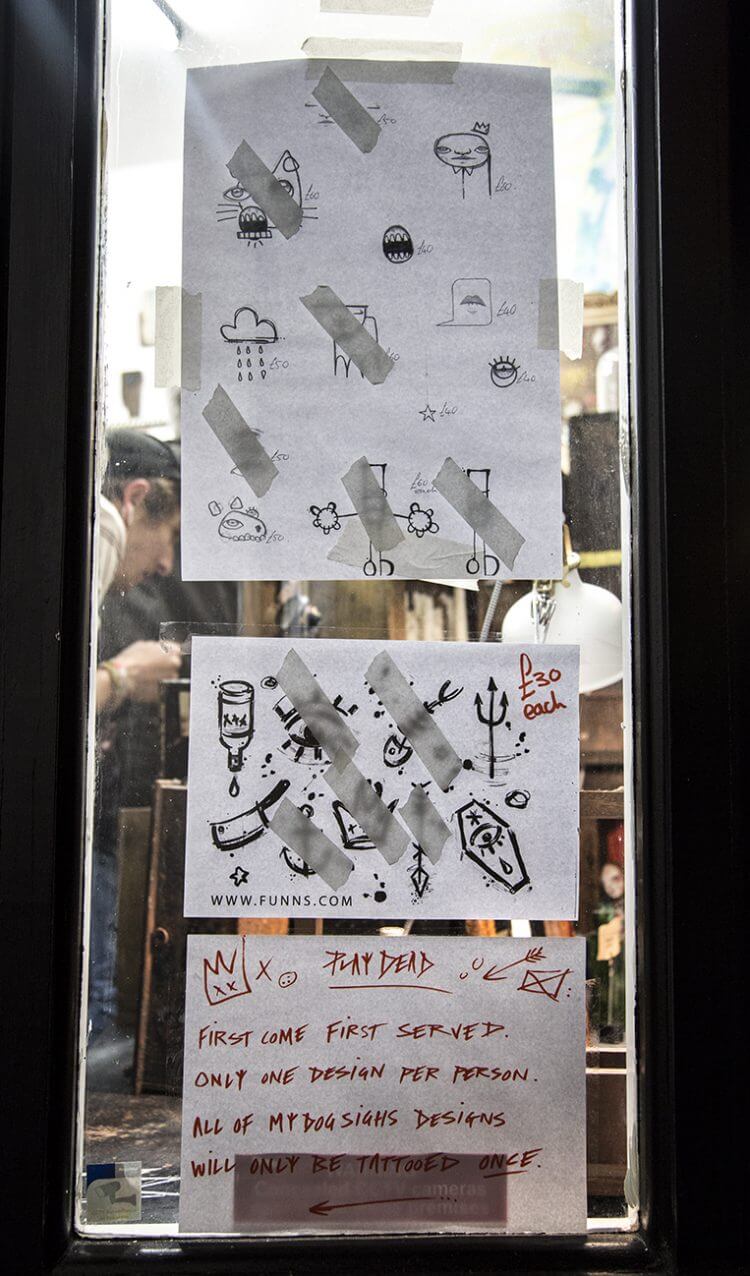 £50
£60
£60.
£40
£40
£50
£40
£40
£50
£60
each
£50
£30
each
XXX
WWW.FUNNS.COM
XX
X
PLAY DEAD
FIRST COME FIRST SERVED.
ONLY ONE DESIGN PER PERSON.
ALL OF MY DOG SIGHS DESIGNS
WILL ONLY BE TATTOOED ONCE.
cameras
premises